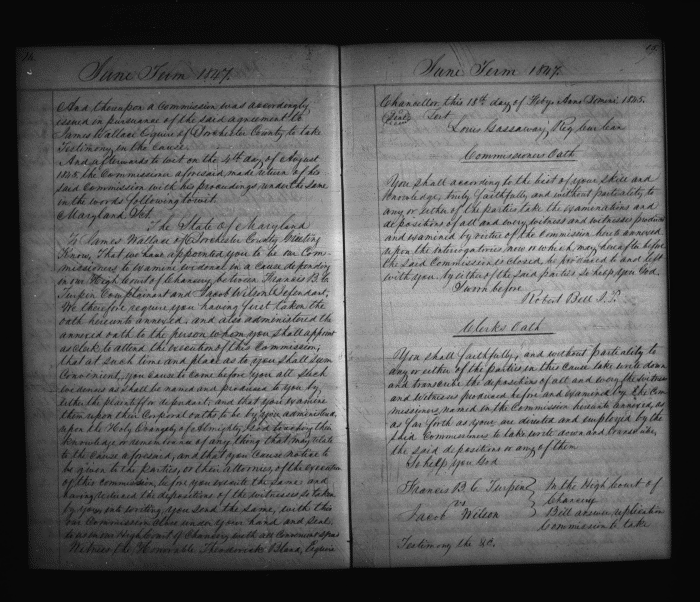 June Term 1847.
And thereupon a Commission was accordingly
issued in pursuance of the said agreement to
James Wallace Esquire of Dorchester County to take
Testimony in the Cause.
And afterwards to wit on the 4th day of August
1845, the Commissioner aforesaid, made return of his
said Commission with his proceedings under the same
in the words following to wit.
Maryland Sct.
The State of Maryland
To James Wallace of Dorchester County Greeting
Know, That we have appointed you to be our Com-
missioner to examine evidence in a cause depending
in our High Court of Chancery between Francis B. C.
Turpin Complainant and Jacob Wilson Defendant,
We therefore require you having first taken the
oath hereunto annexed, and also administered the
annexed oath to the person whom you shall appoint
as Clerk to attend the execution of this Commission,
that at such time and place as to you shall seem
Convenient, you cause to come before you all such
evidences as shall be named and produced to you by
either the plaintiff or defendant; and that you examine
them upon their Corporal oaths, to be by you administered,
upon the Holy Evangely of Almighty God touching their
knowledge or remembrance of any thing that may relate
to the cause aforesaid, and that you cause notice to
be given to the parties, or their attornies, of the execution
of this commission, before you execute the same: and
having reduced the depositions of the witnesses so taken
by you, into writing, you send the same, with this
our Commission, close under your hand and Seal,
to us in our High Court of Chancery with all Convenient speed
Witness the Honorable Theodorick Bland, Esquire
June Term 1847.
Chancellor, this 18th day of Feby. Anno Domini 1845.
Test
Louis Gassaway, Reg Cur Can
Commissioners Oath
You shall according to the best of your skill and
knowledge, truly faithfully and without partiality to
any or either of the parties take the examinations and
depositions of all and every witness and witnesses produced
and examined by virtue of the Commission hereto annexed
upon the interrogatories, now or which may, hereafter before
the said Commission is closed, be produced to and left
with you, by either of the said parties So help you God.
Sworn before
Robert Bell J.P.
Clerks Oath
You shall faithfully, and without partiality to
any or either of the parties in this Cause take write down
and transcribe the depositions of all and every the witness
and witnesses produced before and examined by the Com-
missioners named in the Commission hereunto annexed, as
as far forth as you are directed and employed by the
said Commissioners to take write down and transcribe,
the said depositions or any of them
So help you God
Francis B. C. Turpin
vs
Jacob Wilson
In the High Court of
Chancery
Bill answer replication
Commission to take
Testimony the &c.